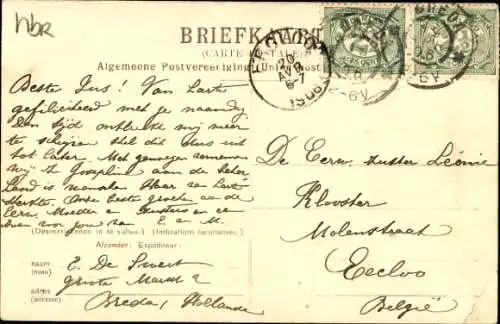 nbr
BRIEFKAART
(CARTE POSTALE)
Algemeene Postvereeniging (Union postale
EECLOO
20
AVR
6-7
1906
Beste Zus! Van harte
gefeliciteerd met je naamdag
Den tijd ontbreekt mij meer
te schrijven stel dit dus uit
tot later. Met genoegen vernemen
wij Josephine aan de beter
Hand is
Beste groeten aan de
Eerw. Moeder en Zusters en een
voor jou van E. en M.
(Overeengekomen in te vullen.) (Indication facultatives.)
Afzender: Expéditeur:
NAAM
(NOM)
E. De Smert
ADRES
(ADRESSE)
Groote Markt 2
Breda, Hollande
De Eerw. Zuster Léonie
Klooster
Molenstraat
Eecloo
België